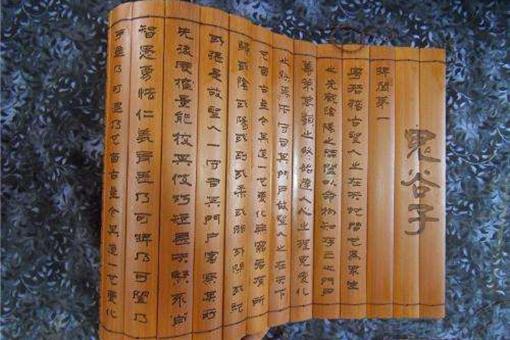 鬼谷子
捭闔第一
粵若稽古聖人之在天地間也為眾生
之先觀陰陽之開闔以命物知存亡之門戶
籌策萬類之終始達人心之理見變化
之朕焉而守司其門戶故聖人之在天下
也自古至今其道一也變化無窮各有所
歸或陰或陽或柔或剛或開或閉或弛
或張是故聖人一守司其門戶審察其所
先後度權量能校其伎巧短長夫賢不肖
智愚勇怯仁義有差乃可捭乃可闔乃
乃可 乃 也自古至今其道一也變化